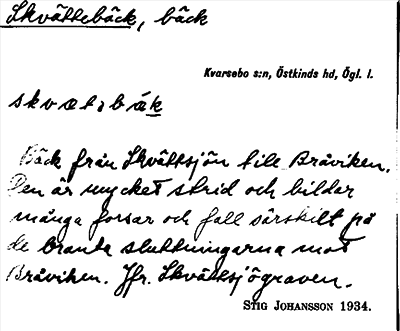 Skvättebäck, bäck
Kvarsebo s:n, Östkinds hd, Ögl. l.
skvætəbäk
Bäck från Skvättsjön till Bråviken.
Den är mycket strid och bildar
många forsar och fall särskilt på
de branta sluttningarna mot
Bråviken. Jfr. Skvättsjögraven.
STIG JOHANSSON 1934.